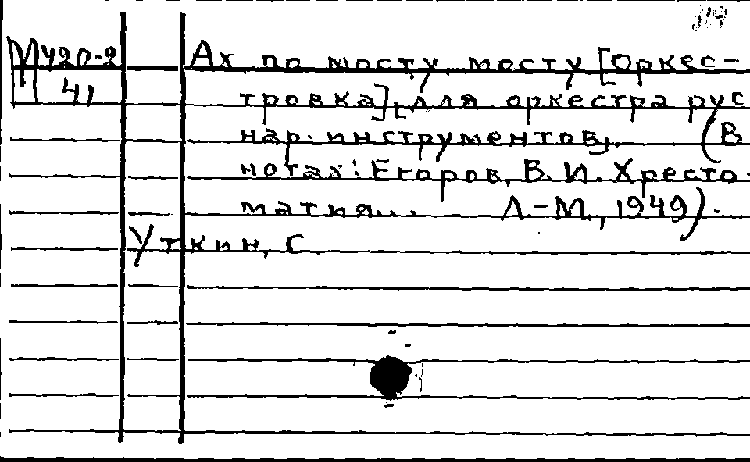 М420-2 Ах по мосту, мосту [Оркес-
41 тровка], [для оркестра рус
нар. инструментов]. (В
нотах: Егоров, В. И. Хресто-
матия... Л.-М., 1949).
Уткин, С